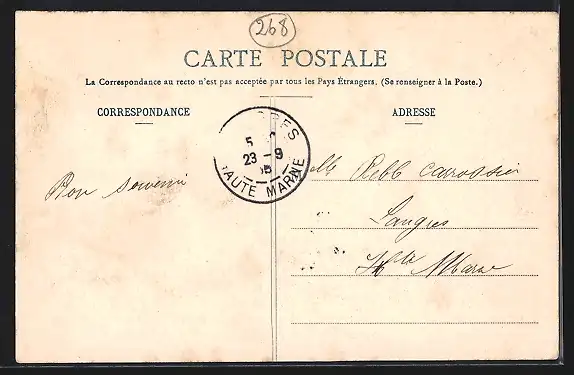 268
CARTE POSTALE
La Correspondance au recto n'est pas acceptée par tous les Pays Étrangers. (Se renseigner à la Poste.)
CORRESPONDANCE
ADRESSE
5
23 - 9
05
HAUTE MARNE
Bon souvenir
Melle Rebb carrossier
Langres
Hte Marne